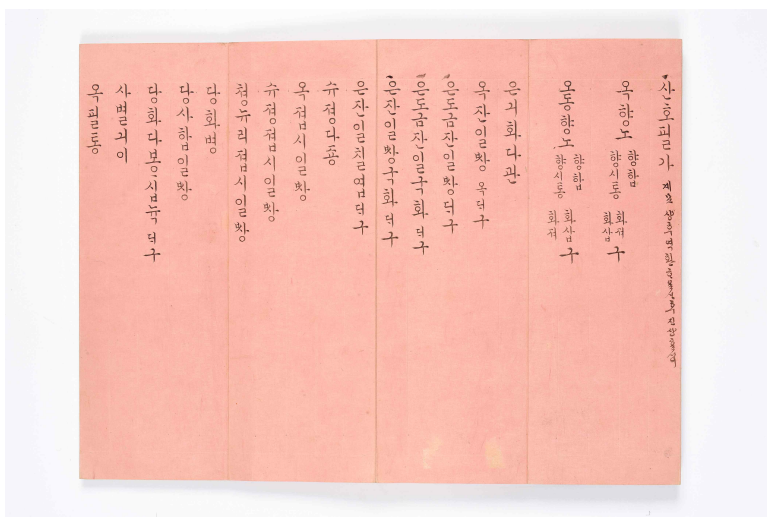 산호필가
옥향노 향합 향시통 화뎌 화삽 구
옥동향노 향합 향시통 화뎌 화삽 구
은긔화다관
옥잔일빵 옥뎌구
은도금잔일빵뎌구
은도금잔일국화뎌구
은잔일빵국화뎌구
은잔일칠엽뎌구
슈졍다죵
옥졉시일빵
슈졍졉시일빵
쳥뉴리졉시일빵
당화병
당사합일빵
당화다봉십뉵뎌구
사별긔이
옥필통